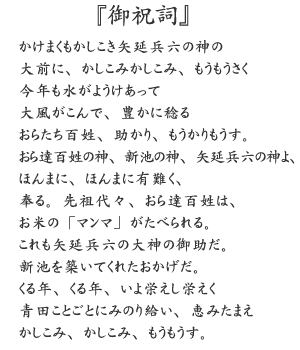 『御祝詞』
かけまくもかしこき矢延兵六の神の
大前に、かしこみかしこみ、もうもうさく
今年も水がようけあって
大風がこんで、豊かに稔る
おらたち百姓、助かり、もうかりもうす。
おら達百姓の神、新池の神、矢延兵六の神よ、
ほんまに、ほんまに有難く、
奉る。先祖代々、おら達百姓は、
お米の「マンマ」がたべられる。
これも矢延兵六の大神の御助だ。
新池を築いてくれたおかげだ。
くる年、くる年、いよ栄えし栄えく
青田ことごとにみのり給い、恵みたまえ
かしこみ、かしこみ、もうもうす。